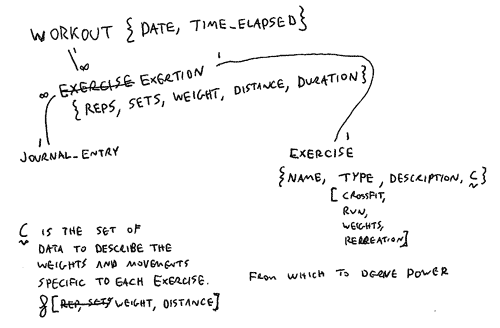 WORKOUT {DATE, TIME_ELAPSED}
∞
1
∞ EXERCISE EXERTION
{REPS, SETS, WEIGHT, DISTANCE, DURATION}
1
1
JOURNAL_ENTRY
EXERCISE
{NAME, TYPE, DESCRIPTION, C}
[CROSSFIT,
RUN,
WEIGHTS,
RECREATION]
C IS THE SET OF
DATA TO DESCRIBE THE
WEIGHTS AND MOVEMENTS
SPECIFIC TO EACH EXERCISE.
[REP, SETS WEIGHT, DISTANCE]
FROM WHICH TO DERIVE POWER